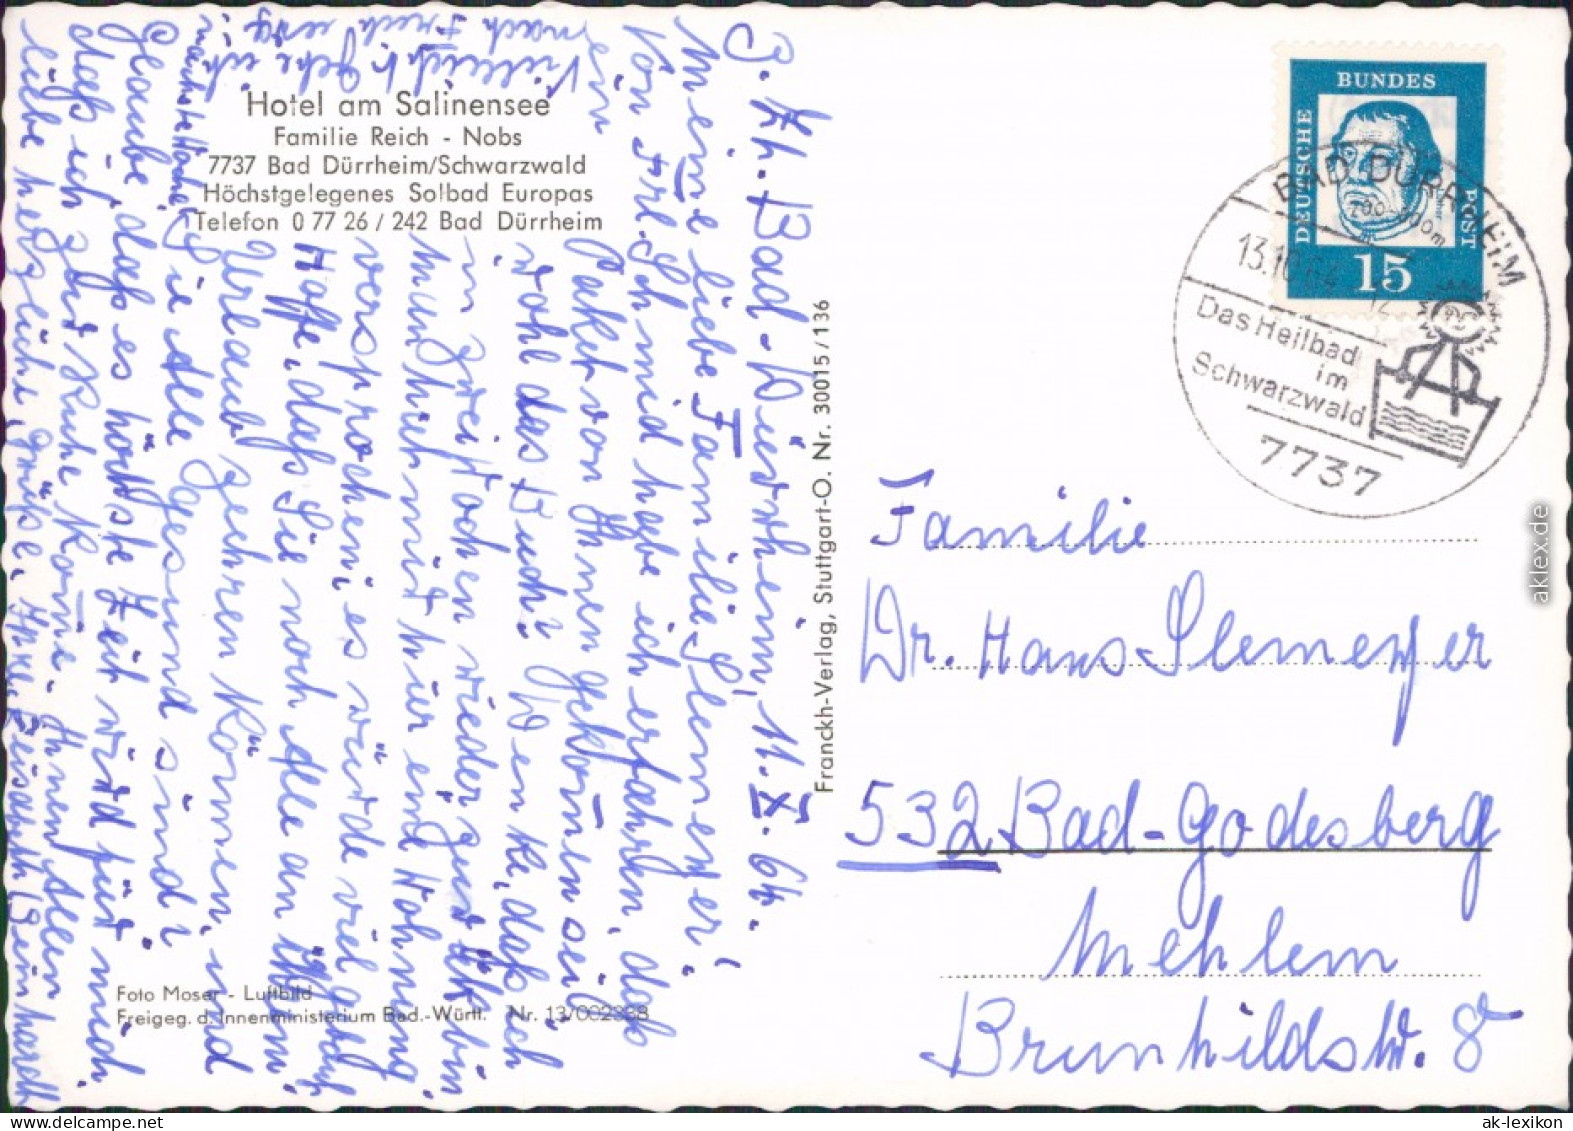 Hotel am Salinensee
Familie Reich - Nobs
7737 Bad Dürrheim/Schwarzwald
Höchstgelegenes Solbad Europas
Telefon 0 77 26 / 242 Bad Dürrheim
Z. Zt. Bad-Dürrheim, 11. X. 64.
Meine liebe Familie Slemeyer!
Von Frl. Schmid habe ich erfahren, daß
ein Paket von Ihnen gekom̅en sei
wohl das Buch? Denke, daß ich
in zwei Wochen wieder
München mit
versprochen, es würde viel
Hoffe, daß Sie noch Alle an Ihrem
Urlaub zehren können, und
Sie Alle gesund sind?
Glaube, daß es höchste Zeit wird für mich,
daß ich zur Ruhe kom̅e. Ihnen Allen
liebe herzliche Grüße, Ihre
Vielleicht gehe ich
nächste Woche
nach
Foto Moser - Luftbild
Freigeg. d. Innenministerium Bad.-Württ. Nr. 13/002388
Franckh-Verlag, Stuttgart-O. Nr. 30015/136
DEUTSCHE
BUNDES
POST
15
BAD DÜRRHEIM
700-800m
13.10.64
Das Heilbad
im
Schwarzwald
7737
Familie
Dr. Hans Slemeyer
532 Bad-Godesberg
Mehlem
Brunhildstr. 8
aklex.de
www.delcampe.net
ak-lexikon